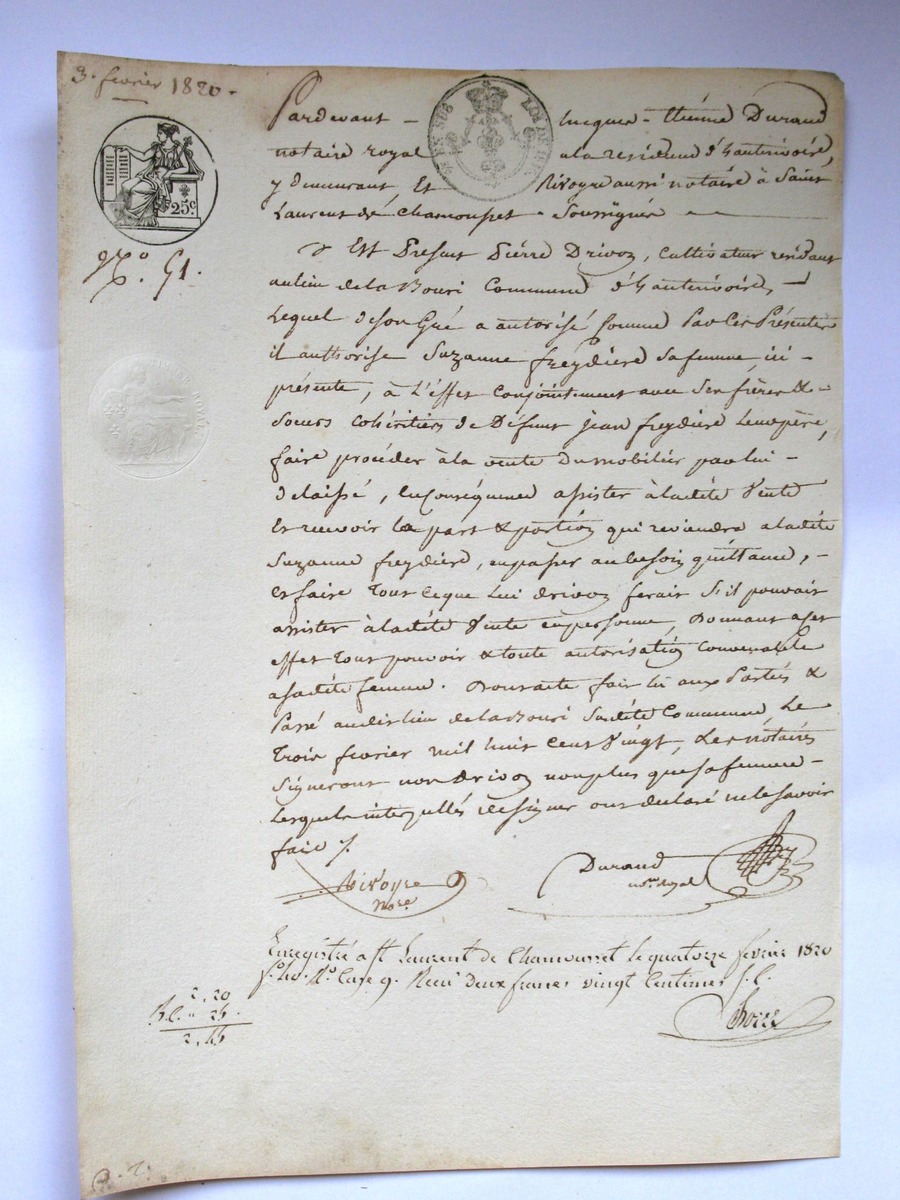 3. fevrier 1820.
Pardevant Jacques Etienne Durand
notaire royal a la residence d'hauterivoire,
y demeurant, Et Rivoyre aussi notaire à Saint
Laurent de Chamousset Soussignés
25c.
N.o 51.
Est Present Pierre Drivoz, Cultivateur residant
au lieu de la Bouri Commune d'hauterivoire,
Lequel de Son Gré a autorisé Comme Par les Présentes
il authorise Suzanne freydiere Sa femme, ici
présente, à L'effet Conjointement avec Ses frères &
Soeurs Cohéritiers de Défunt jean freydiere Leur père,
faire procéder à la vente Du mobilier par lui
delaissé, En Conséquence assister à ladite Vente
Et recevoir la part & portion qui reviendra a ladite
Suzanne freydiere, en passer au besoin quittance,
Et faire Tout Ce que Lui drivoz ferait S'il pouvait
assister à ladite Vente en personne, Donnant a cet
effet tout pouvoir & toute autorisation Convenable
a sadite femme. Dont acte fait lu aux Parties &
Passé audit lieu de la Bouri Sudite Commune Le
Trois fevrier mil huit Cent Vingt, Les notaires
Signeront non Drivoz non plus que sa femme
Lesquels interpellés de Signer ont declaré ne le Savoir
faire /.
Rivoyre
No.re
Durand
no.re royal
Enregistré a St Laurent de Chamousset Le quatorze fevrier 1820
Case 9. Recu Deux francs vingt Centimes
2,20